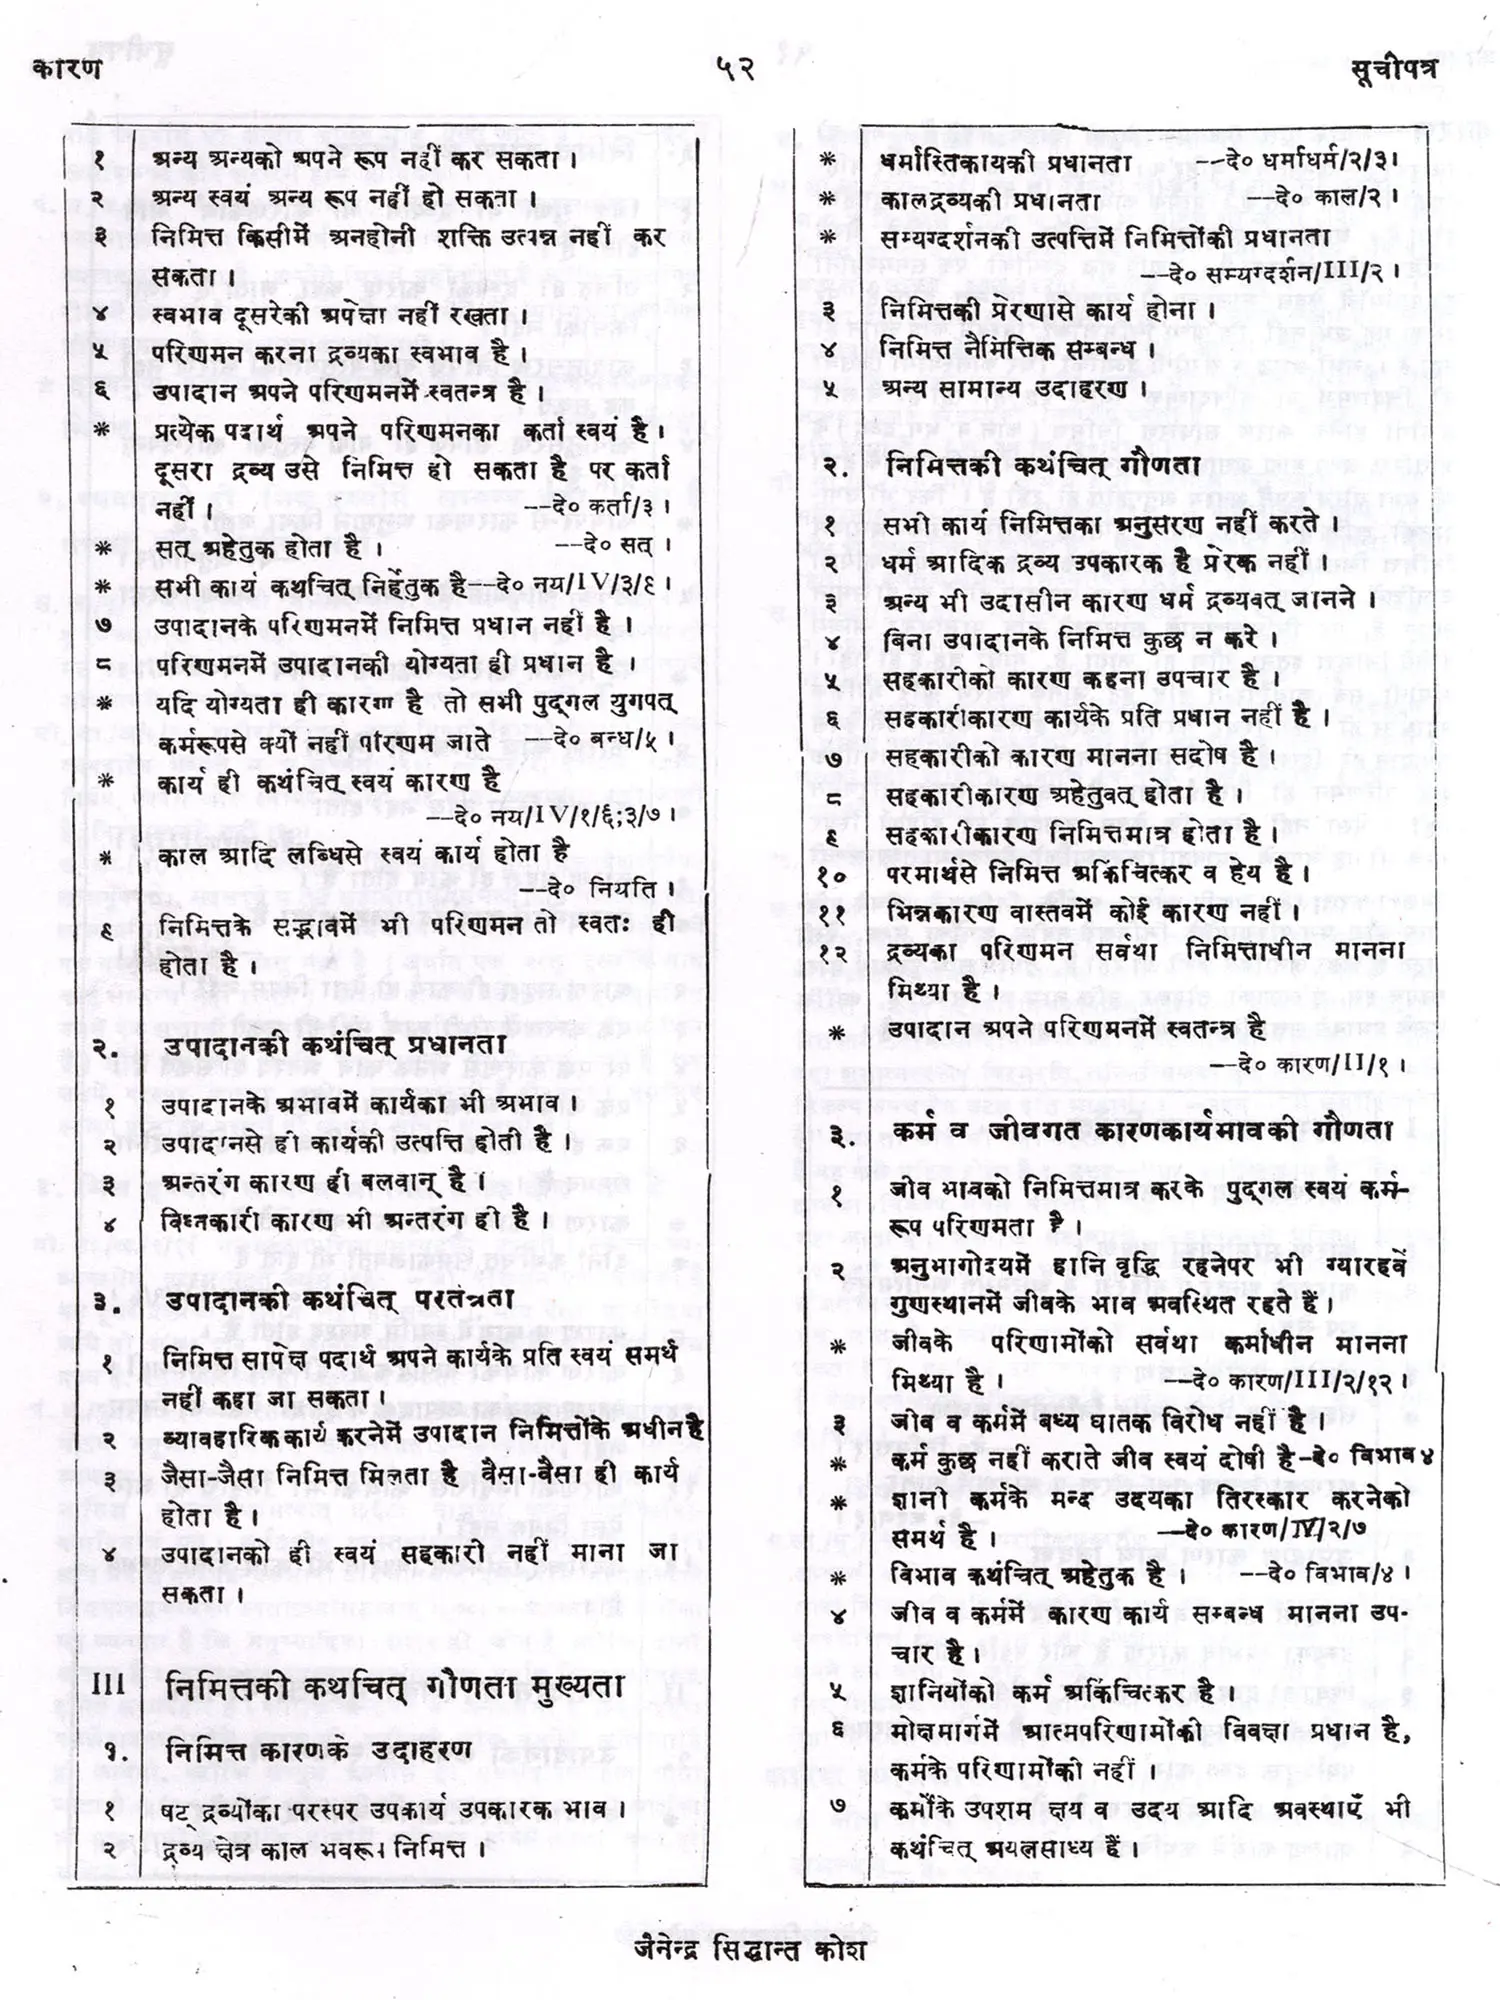 कारण
५२
सूचीपत्र
१ अन्य अन्यको अपने रूप नहीं कर सकता।
२ अन्य स्वयं अन्य रूप नहीं हो सकता।
३ निमित्त किसीमें अनहोनी शक्ति उत्पन्न नहीं कर
सकता।
४ स्वभाव दूसरेकी अपेक्षा नहीं रखता।
५ परिणमन करना द्रव्यका स्वभाव है।
६ उपादान अपने परिणमनमें स्वतन्त्र है।
* प्रत्येक पदार्थ अपने परिणमनका कर्ता स्वयं है।
दूसरा द्रव्य उसे निमित्त हो सकता है पर कर्ता
नहीं। —दे० कर्ता/३।
* सत् अहेतुक होता है। —दे० सत्।
* सभी कार्य कथंचित् निर्हेतुक है—दे० नय/IV/३/९।
७ उपादानके परिणमनमें निमित्त प्रधान नहीं है।
८ परिणमनमें उपादानकी योग्यता ही प्रधान है।
* यदि योग्यता ही कारण है तो सभी पुद्गल युगपत्
कर्मरूपसे क्यों नहीं परिणम जाते —दे० बन्ध/५।
* कार्य ही कथंचित् स्वयं कारण है
—दे० नय/IV/१/६;३/७।
* काल आदि लब्धिसे स्वयं कार्य होता है
—दे० नियति।
९ निमित्तके सद्भावमें भी परिणमन तो स्वतः ही
होता है।
२. उपादानकी कथंचित् प्रधानता
१ उपादानके अभावमें कार्यका भी अभाव।
२ उपादानसे ही कार्यकी उत्पत्ति होती है।
३ अन्तरंग कारण ही बलवान् है।
४ विघ्नकारी कारण भी अन्तरंग ही है।
३. उपादानकी कथंचित् परतंत्रता
१ निमित्त सापेक्ष पदार्थ अपने कार्यके प्रति स्वयं समर्थ
नहीं कहा जा सकता।
२ व्यावहारिक कार्य करनेमें उपादान निमित्तोंके अधीन है
३ जैसा-जैसा निमित्त मिलता है वैसा-वैसा ही कार्य
होता है।
४ उपादानको ही स्वयं सहकारी नहीं माना जा
सकता।
III निमित्तकी कथंचित् गौणता मुख्यता
१. निमित्त कारणके उदाहरण
१ षट् द्रव्योंका परस्पर उपकार्य उपकारक भाव।
२ द्रव्य क्षेत्र काल भवरूप निमित्त।
* धर्मास्तिकायकी प्रधानता —दे० धर्माधर्म/२/३।
* कालद्रव्यकी प्रधानता —दे० काल/२।
* सम्यग्दर्शनकी उत्पत्तिमें निमित्तोंकी प्रधानता
—दे० सम्यग्दर्शन/III/२।
३ निमित्तकी प्रेरणासे कार्य होना।
४ निमित्त नैमित्तिक सम्बन्ध।
५ अन्य सामान्य उदाहरण।
२. निमित्तकी कथंचित् गौणता
१ सभी कार्य निमित्तका अनुसरण नहीं करते।
२ धर्म आदिक द्रव्य उपकारक है प्रेरक नहीं।
३ अन्य भी उदासीन कारण धर्म द्रव्यवत् जानने।
४ बिना उपादानके निमित्त कुछ न करे।
५ सहकारीको कारण कहना उपचार है।
६ सहकारीकारण कार्यके प्रति प्रधान नहीं है।
७ सहकारीको कारण मानना सदोष है।
८ सहकारीकारण अहेतुवत् होता है।
९ सहकारीकारण निमित्तमात्र होता है।
१० परमार्थसे निमित्त अकिंचित्कर व हेय है।
११ भिन्नकारण वास्तवमें कोई कारण नहीं।
१२ द्रव्यका परिणमन सर्वथा निमित्ताधीन मानना
मिथ्या है।
* उपादान अपने परिणमनमें स्वतन्त्र है
—दे० कारण/II/१।
३. कर्म व जीवगत कारणकार्यभावकी गौणता
१ जीव भावको निमित्तमात्र करके पुद्गल स्वयं कर्म-
रूप परिणमता है।
२ अनुभागोदयमें हानि वृद्धि रहनेपर भी ग्यारहवें
गुणस्थानमें जीवके भाव अवस्थित रहते हैं।
* जीवके परिणामोंको सर्वथा कर्माधीन मानना
मिथ्या है। —दे० कारण/III/२/१२।
३ जीव व कर्ममें बध्य घातक विरोध नहीं है।
* कर्म कुछ नहीं कराते जीव स्वयं दोषी है-दे० विभाव४
* ज्ञानी कर्मके मन्द उदयका तिरस्कार करनेको
समर्थ है। —दे० कारण/IV/२/७
* विभाव कथंचित् अहेतुक है। —दे० विभाव/४।
४ जीव व कर्ममें कारण कार्य सम्बन्ध मानना उप-
चार है।
५ ज्ञानियोंको कर्म अकिंचित्कर है
६ मोक्षमार्गमें आत्मपरिणामोंकी विवक्षा प्रधान है,
कर्मके परिणामोंकी नहीं।
७ कर्मोंके उपशम क्षय व उदय आदि अवस्थाएँ भी
कथंचित् अयत्नसाध्य हैं।
जैनेन्द्र सिद्धान्त कोश